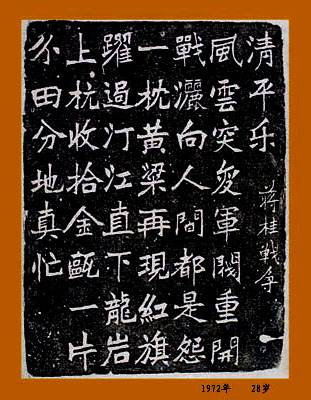 清平乐 蒋桂戰争
風雲突变軍閥重開
戰灑向人間都是怨
一枕黄梁再現紅旗
躍過汀江直下龍岩
上杭收拾金甌一片
分田分地真忙
1972年 28岁